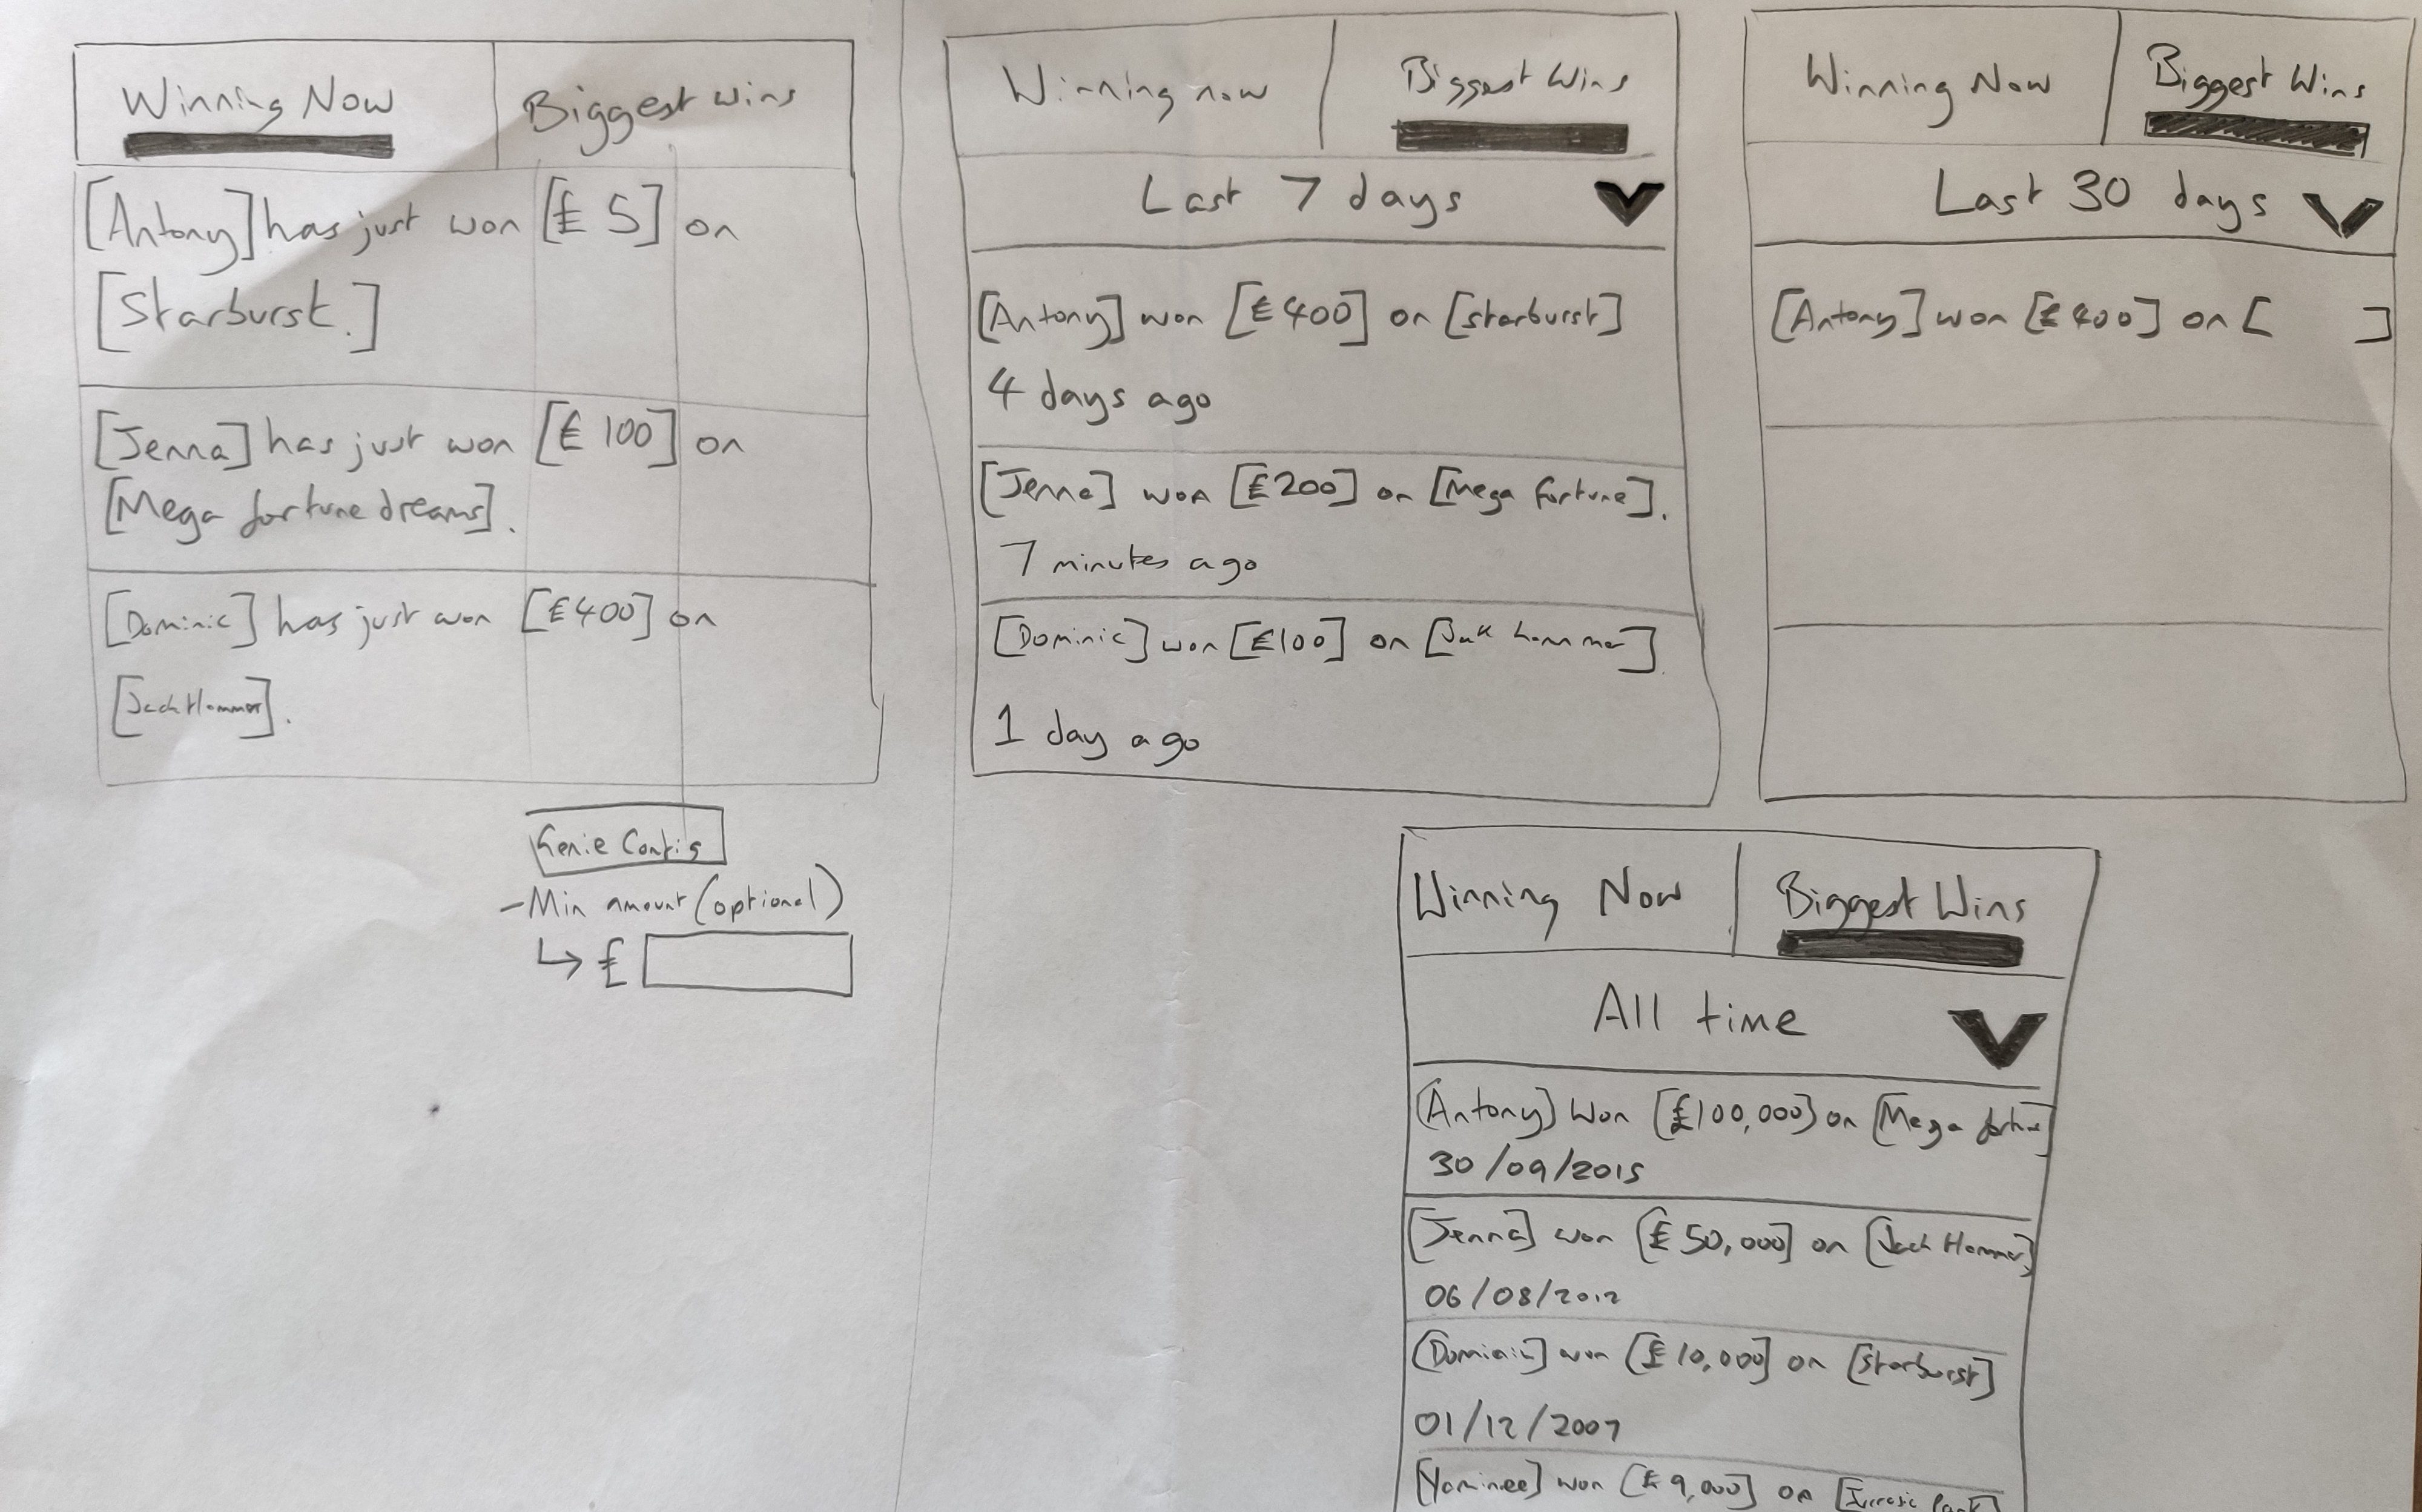 Winning Now
Biggest wins
[Antony] has just won [£ 5] on
[Starburst.]
[Jenna] has just won [£ 100] on
[Mega fortune dreams].
[Dominic] has just won [£400] on
[Jack Hammer].
Genie Config
- Min amount (optional)
↳ £
Winning now
Biggest Wins
Last 7 days
[Antony] won [£400] on [starburst]
4 days ago
[Jenna] won [£200] on [Mega fortune].
7 minutes ago
[Dominic] won [£100] on [Jack hammer]
1 day ago
Winning Now
Biggest Wins
Last 30 days
[Antony] won [£400] on [ ]
Winning Now
Biggest Wins
All time
[Antony] Won [£100,000] on [Mega fortune]
30/09/2015
[Jenna] won [£50,000] on [Jack Hammer]
06/08/2012
[Dominic] won [£10,000] on [starburst]
01/12/2007
[Yominee] won [£9,000] on [Jurrasic Park]